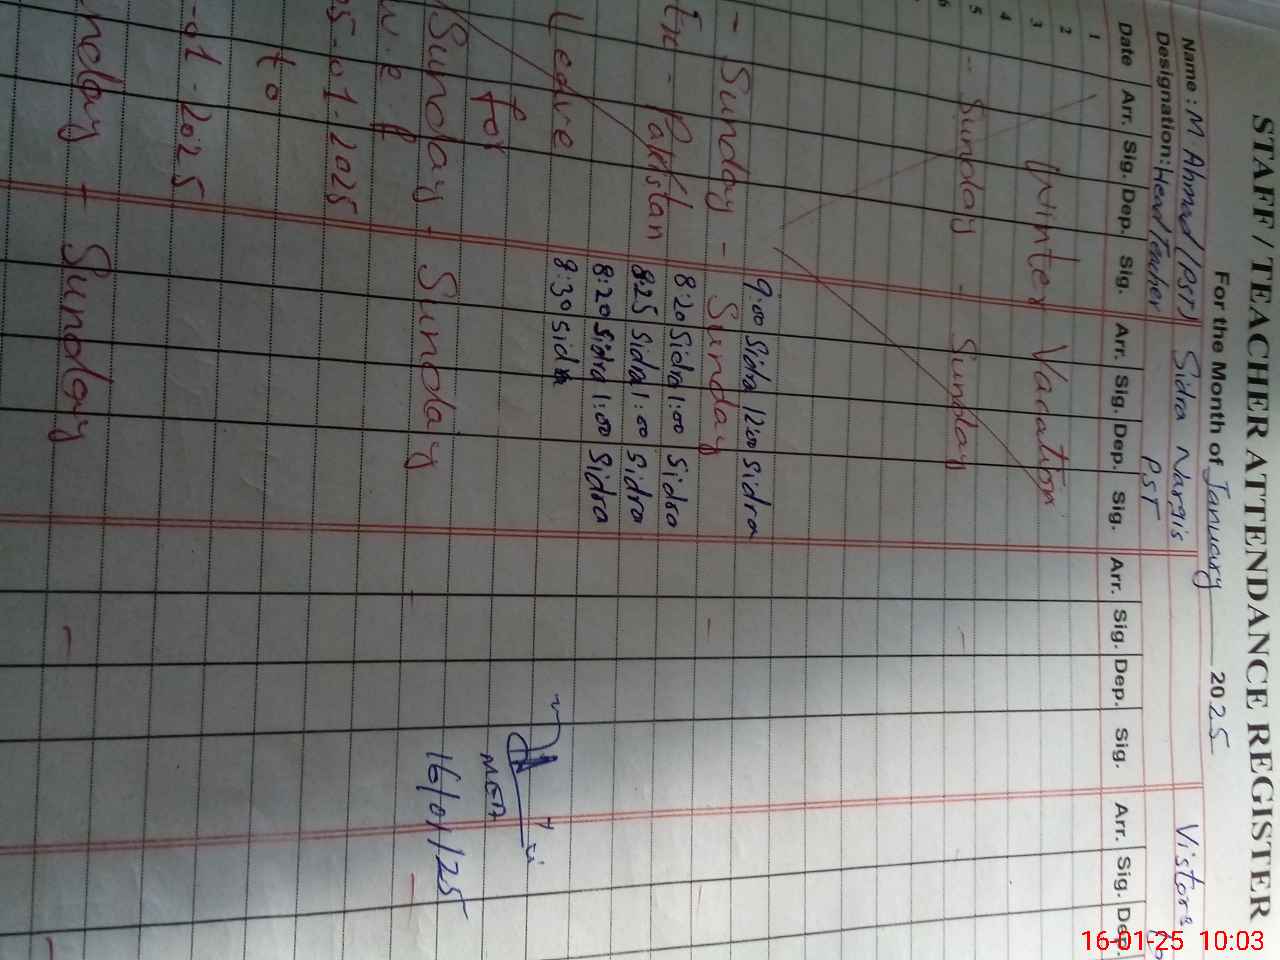 STAFF / TEACHER ATTENDANCE REGISTER
For the Month of January 2025
Name: M Ahmad (PST) Sidra Nargis Vistors
Designation: Head Teacher PST
Date Arr. Sig. Dep. Sig. Arr. Sig. Dep. Sig. Arr. Sig. Dep. Sig. Arr. Sig. Dep.
1
2
3 Winter Vacation
4
5 - Sunday - Sunday -
6
9:00 Sidra 12:00 Sidra
- Sunday - Sunday -
8:20 Sidra 1:00 Sidra
Ex - Pakistan 8:25 Sidra 1:00 Sidra
8:20 Sidra 1:00 Sidra
Leave 8:30 Sidra
for
MEA
Sunday - Sunday - -
16/01/25
w.e.f
5-01-2025
to
-01-2025
nday - Sunday - -
16-01-25 10:03